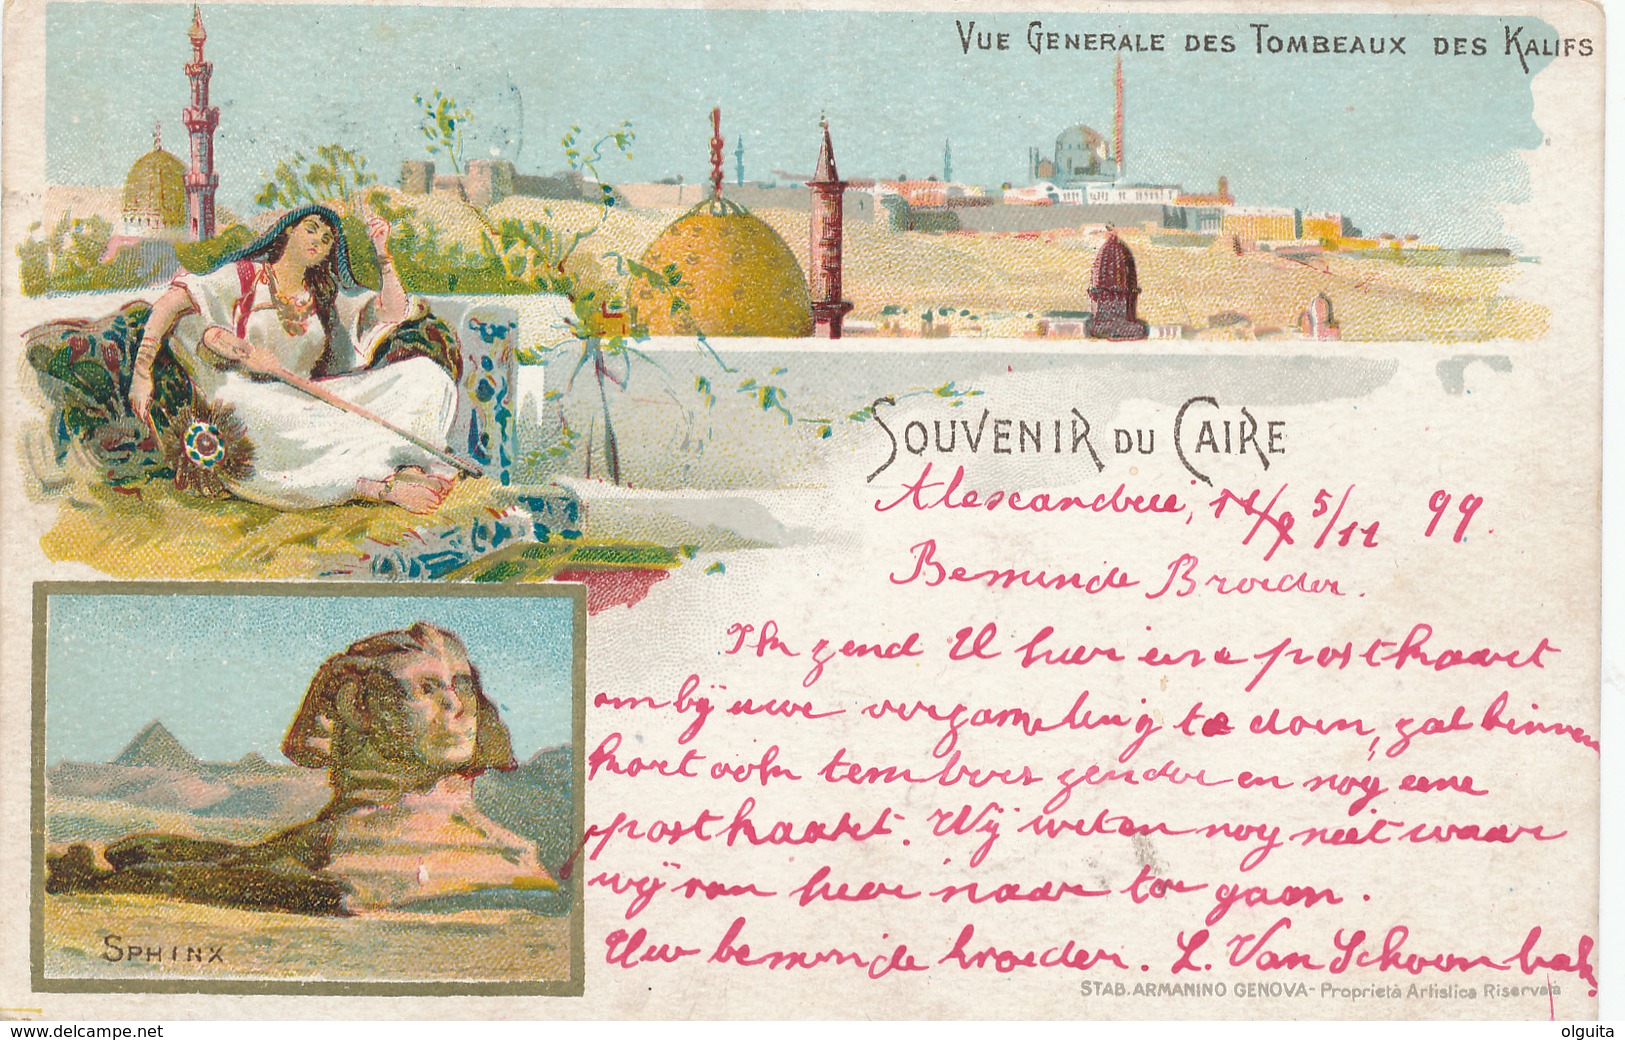 VUE GENERALE DES TOMBEAUX DES KALIFS
SOUVENIR DU CAIRE
Alexandrië, 5/11 99.
Beminde Broeder.
Ik zend U hier eene postkaart
om bij uwe verzameling te doen, zal binnen
kort ook tembres zenden en nog eene
postkaart. Wij weten nog niet waar
wij van hier naar toe gaan.
Uw beminde broeder. L. Van Schoonbeek
SPHINX
STAB. ARMANINO GENOVA - Proprietà Artistica Riservata
delcampe.net
olguita